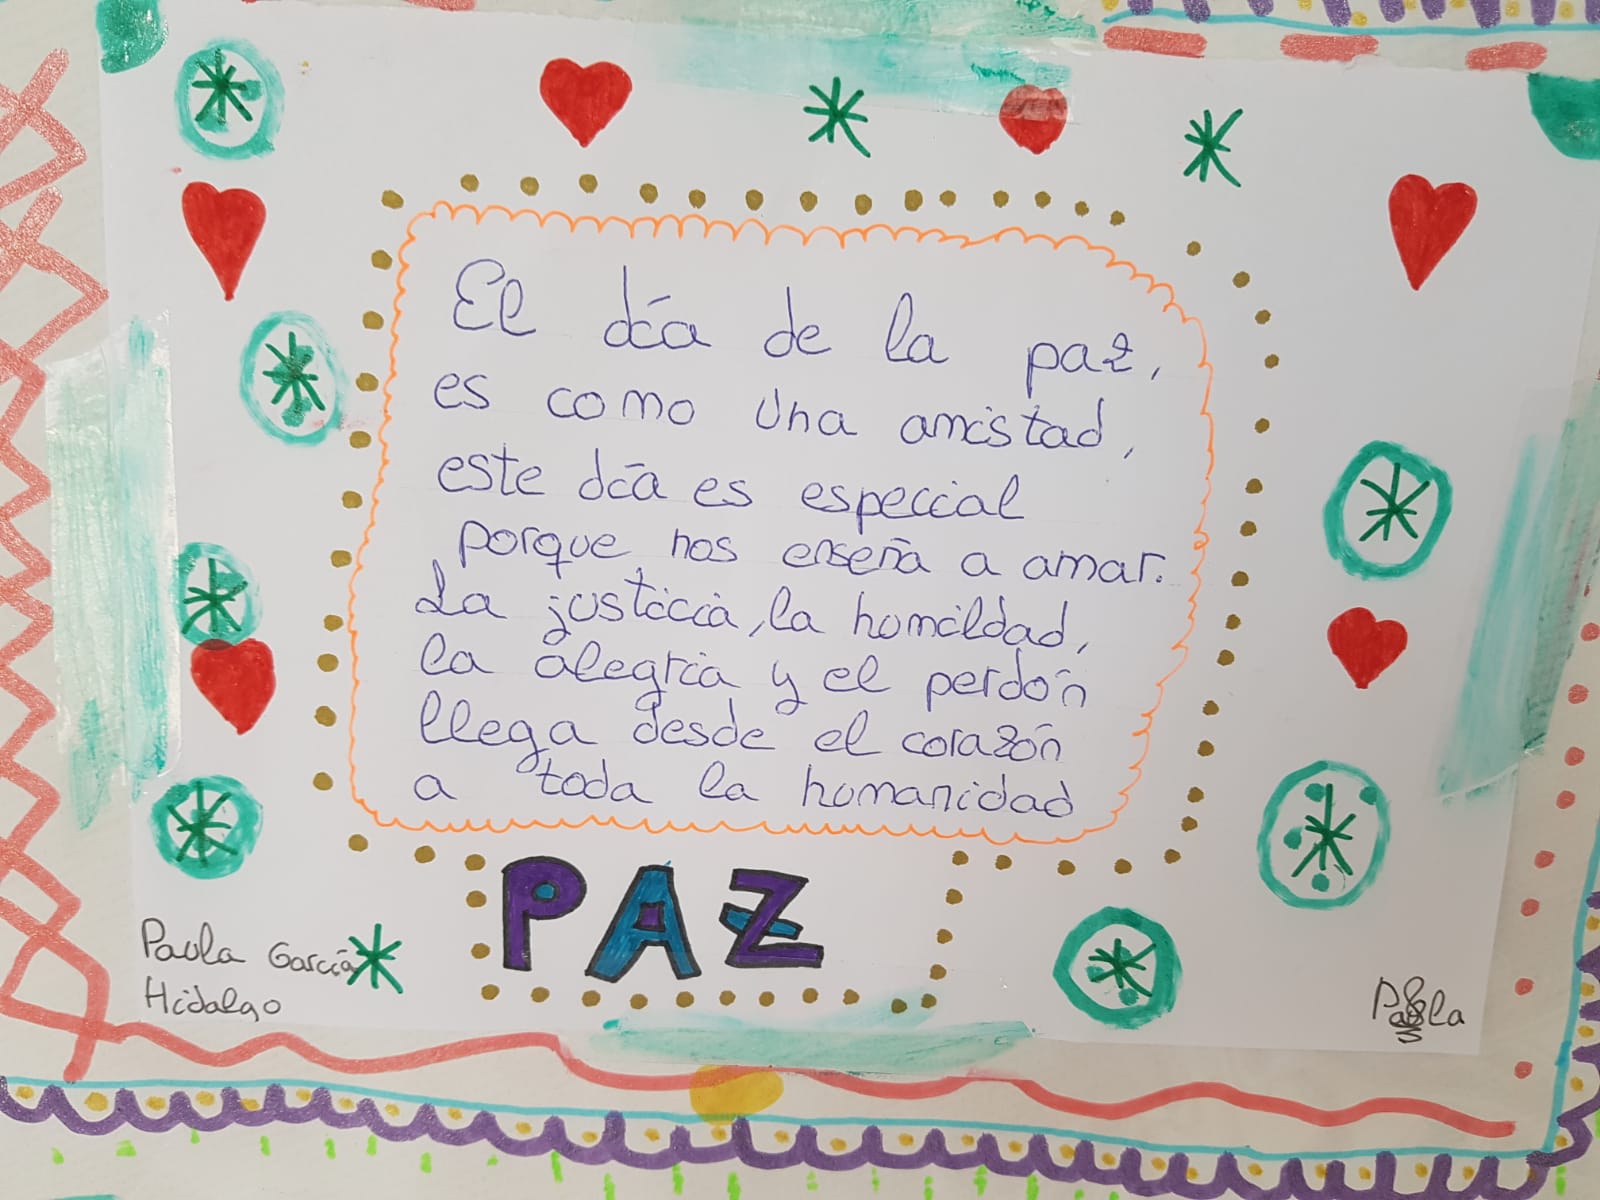 El día de la paz,
es como una amistad,
este día es especial
porque nos enseña a amar.
La justicia, la homildad,
la alegría y el perdón
llega desde el corazón
a toda la humanidad
PAZ
Paula García
Hidalgo
Paula